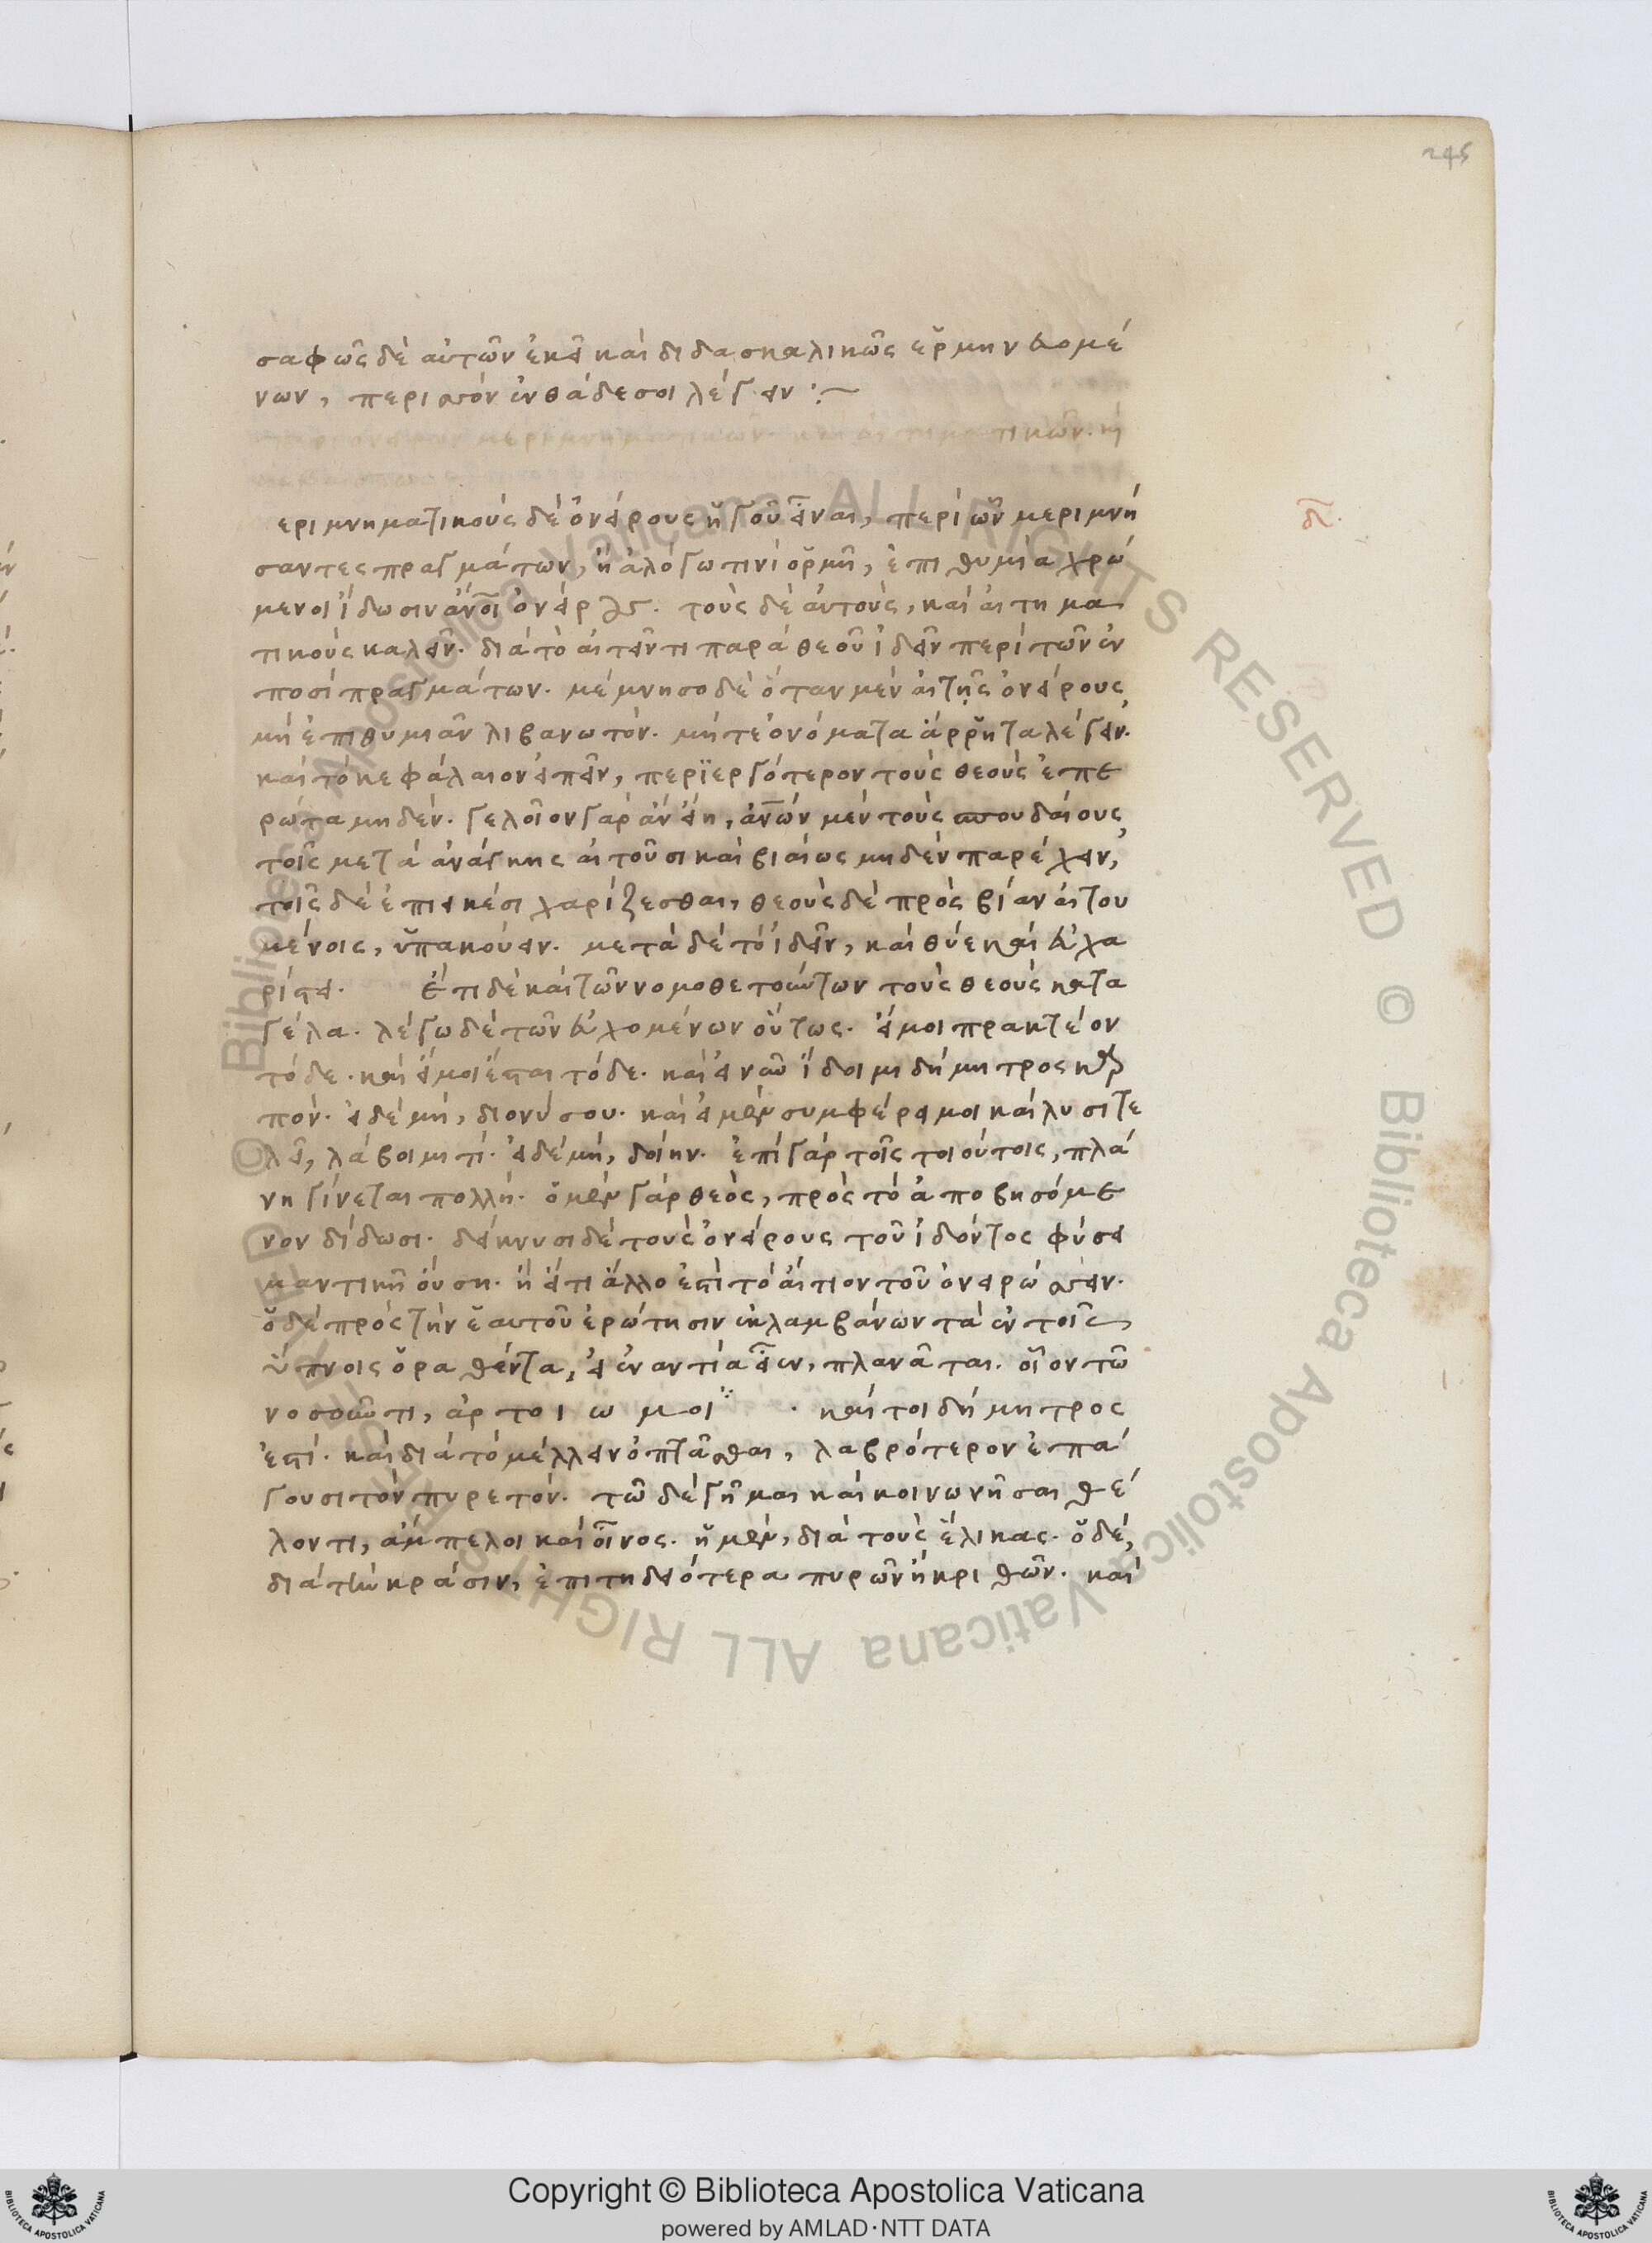 245
σαφῶς δὲ αὐτῶν ἐκεῖ καὶ διδασκαλικῶς ἑρμηνευομέ
νων, περισσὸν ἐνθάδε σοι λέγειν :~
ματικῶν. καὶ αἰτηματικῶν.
δ.
εριμνηματικοὺς δὲ ὀνείρους ἡγοῦ εἶναι, περὶ ὧν μεριμνή
σαντες πραγμάτων, ἢ ἀλόγω τινὶ ὁρμῆ, ἐπιθυμία χρώ
μενοι ἴδωσιν ἄνοι ὀνείρους. τοὺς δὲ αὐτοὺς, καὶ αἰτημα
τικοὺς καλεῖν. διὰ τὸ αἰτεῖν τι παρὰ θεοῦ ἰδεῖν περὶ τῶν ἐν
ποσὶ πραγμάτων. μέμνησο δὲ ὅταν μὲν αἰτῆς ὀνείρους,
μὴ ἐπιθυμιᾶν λιβανωτόν. μήτε ὀνόματα ἄρρητα λέγειν.
καὶ τὸ κεφάλαιον εἰπεῖν, περϊεργότερον τοὺς θεοὺς ἐπε
ρώτα μηδέν. γελοῖον γὰρ ἂν εἴη, ἀνῶν μὲν τοὺς σπουδαίους
τοῖς μετὰ ἀνάγκης αἰτοῦσι καὶ βιαίως μηδὲν παρέχειν,
τοῖς δὲ ἐπιεικέσι χαρίζεσθαι, θεοὺς δὲ πρὸς βίαν αἰτου
μένοις, ὑπακούειν. μετὰ δὲ τὸ ἰδεῖν, καὶ θύε καὶ εὐχα
ρίστει. ἔτι δὲ καὶ τῶν νομοθετούντων τοὺς θεοὺς κατα
γέλα. λέγω δὲ τῶν εὐχομένων οὕτως. εἴ μοι πρακτέον
τόδε. καὶ εἴ μοι ἔσται τόδε. καὶ εἰ νῦν ἴδοιμι δήμητρος καρ
πόν. εἰ δὲ μή, διονύσου. καὶ εἰ μὲν συμφέρει μοι καὶ λυσιτε
λεῖ, λάβοιμι τί. εἰ δὲ μή, δοίην. ἐπὶ γὰρ τοῖς τοιούτοις, πλά
νη γίνεται πολλή. ὁ μὲν γὰρ θεὸς, πρὸς τὸ ἀποβησόμε
νον δίδωσι. δείκνυσι δὲ τοὺς ὀνείρους τοῦ ἰδόντος φύσει
μαντικῆ οὔση. ἢ εἴ τι ἄλλο ἐστὶ τὸ αἴτιον τοῦ ὀνειρώσσειν.
ὁ δὲ πρὸς τὴν ἑαυτοῦ ἐρώτησιν ἐκλαμβάνων τὰ ἐν τοῖς
ὕπνοις ὁραθέντα, εἰ ἐναντία εἴεν, πλανᾶται. οἷον τῶ
νοσοῦντι, ἄρτοι ὠμοὶ . καίτοι δήμητρος
ἐστί. καὶ διὰ τὸ μέλλειν ὀπτᾶσθαι, λαβρότερον ἐπά
γουσι τὸν πυρετόν. τῶ δὲ γῆμαι καὶ κοινωνῆσαι θέ
λοντι, ἄμπελοι καὶ οἶνος. ἡ μὲν, διὰ τοὺς ἕλικας. ὁ δὲ,
διὰ τὴν κράσιν, ἐπιτηδειότερα πυρῶν ἢ κριθῶν. καὶ
© Biblioteca Apostolica Vaticana ALL RIGHTS RESERVED © Biblioteca Apostolica Vaticana ALL RIGHTS RESERVED
Copyright © Biblioteca Apostolica Vaticana
powered by AMLAD·NTT DATA
BIBLIOTECA APOSTOLICA VATICANA
BIBLIOTECA APOSTOLICA VATICANA